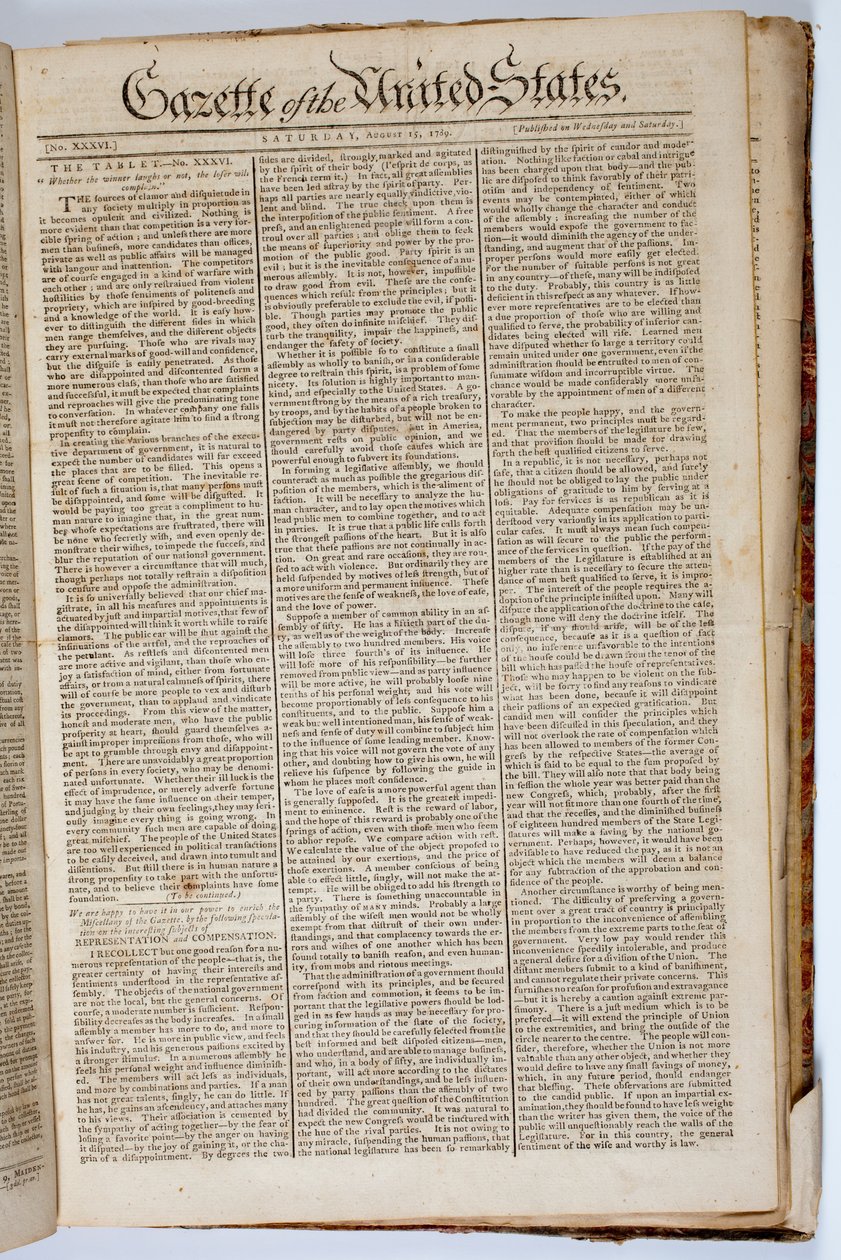 Gazette of the United States.
[No. XXXVI.]
SATURDAY, August 15, 1789.
[Publiſhed on Wedneſday and Saturday.]
THE TABLET.—No. XXXVI.
"Whether the winner laughs or not, the loſer will
complain."
THE ſources of clamor and diſquietude in
any ſociety multiply in proportion as
it becomes opulent and civilized. Nothing is
more evident than that competition is a very for-
cible ſpring of action ; and unleſs there are more
men than buſineſs, more candidates than offices,
private as well as public affairs will be managed
with langour and inattention. The competitors
are of courſe engaged in a kind of warfare with
each other ; and are only reſtrained from violent
hoſtilities by thoſe ſentiments of politeneſs and
propriety, which are inſpired by good-breeding
and a knowledge of the world. It is eaſy how-
ever to diſtinguiſh the different ſides in which
men range themſelves, and the different objects
they are purſuing. Thoſe who are rivals may
carry external marks of good-will and confidence,
but the diſguiſe is eaſily penetrated. As thoſe
who are diſappointed and diſcontented form a
more numerous claſs, than thoſe who are ſatisfied
and ſucceſsful, it muſt be expected that complaints
and reproaches will give the predominating tone
to converſation. In whatever company one falls
it muſt not therefore agitate him to find a ſtrong
propenſity to complain.
In creating the various branches of the execu-
tive department of government, it is natural to
expect the number of candidates will far exceed
the places that are to be filled. This opens a
great ſcene of competition. The inevitable re-
ſult of ſuch a ſituation is, that many perſons muſt
be diſappointed, and ſome will be diſguſted. It
would be paying too great a compliment to hu-
man nature to imagine that, in the great num-
ber whoſe expectations are fruſtrated, there will
be none who ſecretly wiſh, and even openly de-
monſtrate their wiſhes, to impede the ſucceſs, and
blur the reputation of our national government.
There is however a circumſtance that will much,
though perhaps not totally reſtrain a diſpoſition
to cenſure and oppoſe the adminiſtration.
It is ſo univerſally believed that our chief ma-
giſtrate, in all his meaſures and appointments is
actuated by juſt and impartial motives, that few of
the diſappointed will think it worth while to raiſe
clamors. The public ear will be ſhut againſt the
inſinuations of the artful, and the reproaches of
the petulant. As reſtleſs and diſcontented men
are more active and vigilant, than thoſe who en-
joy a ſatisfaction of mind, either from fortunate
affairs, or from a natural calmneſs of ſpirits, there
will of courſe be more people to vex and diſturb
the government, than to applaud and vindicate
its proceedings. From this view of the matter,
honeſt and moderate men, who have the public
proſperity at heart, ſhould guard themſelves a-
gainſt improper impreſſions from thoſe, who will
be apt to grumble through envy and diſappoint-
ment. There are unavoidably a great proportion
of perſons in every ſociety, who may be denomi-
nated unfortunate. Whether their ill luck is the
effect of imprudence, or merely adverſe fortune
it may have the ſame influence on their temper,
and judging by their own feelings, they may ſeri-
ouſly imagine every thing is going wrong. In
every community ſuch men are capable of doing
great miſchief. The people of the United States
are too well experienced in political tranſactions
to be eaſily deceived, and drawn into tumult and
diſſentions. But ſtill there is in human nature a
ſtrong propenſity to take part with the unfortu-
nate, and to believe their complaints have ſome
foundation.
(To be continued.)
We are happy to have it in our power to enrich the
Miſcellany of the Gazette, by the following ſpecula-
tion on the intereſting ſubjects of
REPRESENTATION and COMPENSATION.
I RECOLLECT but one good reaſon for a nu-
merous repreſentation of the people—that is, the
greater certainty of having their intereſts and
ſentiments underſtood in the repreſentative aſ-
ſembly. The objects of the national government
are not the local, but the general concerns. Of
courſe, a moderate number is ſufficient. Reſpon-
ſibility decreaſes as the body increaſes. In a ſmall
aſſembly a member has more to do, and more to
anſwer for. He is more in public view, and feels
his induſtry, and his generous paſſions excited by
a ſtronger ſtimulus. In a numerous aſſembly he
feels his perſonal weight and influence diminiſh-
ed. The members will act leſs as individuals,
and more by combinations and parties. If a man
has not great talents, ſingly, he can do little. If
he has, he gains an aſcendency, and attaches many
to his views. Their aſſociation is cemented by
the ſympathy of acting together—by the fear of
loſing a favorite point—by the anger on having
it diſputed—by the joy of gaining it, or the cha-
grin of a diſappointment. By degrees the two
ſides are divided, ſtrongly marked and agitated
by the ſpirit of their body (l'eſprit de corps, as
the French term it.) In fact, all great aſſemblies
have been led aſtray by the ſpirit of party. Per-
haps all parties are nearly equally vindictive, vio-
lent and blind. The true check upon them is
the interpoſition of the public ſentiment. A free
preſs, and an enlightened people will form a con-
troul over all parties ; and oblige them to ſeek
the means of ſuperiority and power by the pro-
motion of the public good. Party ſpirit is an
evil ; but it is the inevitable conſequence of a nu-
merous aſſembly. It is not, however, impoſſible
to draw good from evil. Theſe are the conſe-
quences which reſult from the principles ; but it
is obviouſly preferable to exclude the evil, if poſſi-
ble. Though parties may promote the public
good, they often do infinite miſchief. They diſ-
turb the tranquility, impair the happineſs, and
endanger the ſafety of ſociety.
Whether it is poſſible ſo to conſtitute a ſmall
aſſembly as wholly to baniſh, or in a conſiderable
degree to reſtrain this ſpirit, is a problem of ſome
nicety. Its ſolution is highly important to man-
kind, and eſpecially to the United States. A go-
vernment ſtrong by the means of a rich treaſury,
by troops, and by the habits of a people broken to
ſubjection may be diſturbed, but will not be en-
dangered by party diſputes. But in America,
government reſts on public opinion, and we
ſhould carefully avoid thoſe cauſes which are
powerful enough to ſubvert its foundations.
In forming a legiſlative aſſembly, we ſhould
counteract as much as poſſible the gregarious diſ-
poſition of the members, which is the aliment of
faction. It will be neceſſary to analyze the hu-
man character, and to lay open the motives which
lead public men to combine together, and to act
in parties. It is true that a public life calls forth
the ſtrongeſt paſſions of the heart. But it is alſo
true that theſe paſſions are not continually in ac-
tion. On great and rare occaſions, they are rou-
ſed to act with violence. But ordinarily they are
held ſuſpended by motives of leſs ſtrength, but of
a more uniform and permanent influence. Theſe
motives are the ſenſe of weakneſs, the love of eaſe,
and the love of power.
Suppoſe a member of common ability in an aſ-
ſembly of fifty. He has a fiftieth part of the du-
ty, as well as of the weight of the body. Increaſe
the aſſembly to two hundred members. His voice
will loſe three fourth's of its influence. He
will loſe more of his reſponſibility—be further
removed from public view—and as party influence
will be more active, he will probably looſe nine
tenths of his perſonal weight; and his vote will
become proportionably of leſs conſequence to his
conſtituents, and to the public. Suppoſe him a
weak but well intentioned man, his ſenſe of weak-
neſs and ſenſe of duty will combine to ſubject him
to the influence of ſome leading member. Know-
ing that his voice will not govern the vote of any
other, and doubting how to give his own, he will
relieve his ſuſpence by following the guide in
whom he places moſt confidence.
The love of eaſe is a more powerful agent than
is generally ſuppoſed. It is the greateſt impedi-
ment to eminence. Reſt is the reward of labor,
and the hope of this reward is probably one of the
ſprings of action, even with thoſe men who ſeem
to abhor repoſe. We compare action with reſt.
We calculate the value of the object propoſed to
be attained by our exertions, and the price of
thoſe exertions. A member conſcious of being
able to effect little, ſingly, will not make the at-
tempt. He will be obliged to add his ſtrength to
a party. There is ſomething unaccountable in
the ſympathy of MANY minds. Probably a large
aſſembly of the wiſeſt men would not be wholly
exempt from that diſtruſt of their own under-
ſtandings, and that complacency towards the er-
rors and wiſhes of one another which has been
found totally to baniſh reaſon, and even human-
ity, from mobs and riotous meetings.
That the adminiſtration of a government ſhould
correſpond with its principles, and be ſecured
from faction and commotion, it ſeems to be im-
portant that the legiſlative powers ſhould be lod-
ged in as few hands as may be neceſſary for pro-
curing information of the ſtate of the ſociety,
and that they ſhould be carefully ſelected from the
beſt informed and beſt diſpoſed citizens—men,
who underſtand, and are able to manage buſineſs,
and who, in a body of fifty, are individually im-
portant, will act more according to the dictates
of their own underſtandings, and be leſs influen-
ced by party paſſions than the aſſembly of two
hundred. The great queſtion of the Conſtitution
had divided the community. It was natural to
expect the new Congreſs would be tinctured with
the hue of the rival parties. It is not owing to
any miracle, ſuſpending the human paſſions, that
the national legiſlature has been ſo remarkably
diſtinguiſhed by the ſpirit of candor and moder-
ation. Nothing like faction or cabal and intrigue
has been charged upon that body—and the pub-
lic are diſpoſed to think favorably of their patri-
otiſm and independence of ſentiment. Two
events may be contemplated, either of which
would wholly change the character and conduct
of the aſſembly ; increaſing the number of the
members would expoſe the government to fac-
tion—it would diminiſh the agency of the under-
ſtanding, and augment that of the paſſions. Im-
proper perſons would more eaſily get elected.
For the number of ſuitable perſons is not great
in any country—of theſe, many will be indiſpoſed
to the duty. Probably, this country is as little
deficient in this reſpect as any whatever. If how-
ever more repreſentatives are to be elected than
a due proportion of thoſe who are willing and
qualified to ſerve, the probability of inferior can-
didates being elected will riſe. Learned men
have diſputed whether ſo large a territory could
remain united under one government, even if the
adminiſtration ſhould be entruſted to men of con-
ſummate wiſdom and incorruptible virtue. The
chance would be made conſiderably more unfa-
vorable by the appointment of men of a different
character.
To make the people happy, and the govern-
ment permanent, two principles muſt be regard-
ed. That the members of the legiſlature be few,
and that proviſion ſhould be made for drawing
forth the beſt qualified citizens to ſerve.
In a republic, it is not neceſſary, perhaps not
ſafe, that a citizen ſhould be allowed, and ſurely
he ſhould not be obliged to lay the public under
obligations of gratitude to him by ſerving at a
loſs. Pay for ſervices is as republican as it is
equitable. Adequate compenſation may be un-
derſtood very variouſly in its application to parti-
cular caſes. It muſt always mean ſuch compen-
ſation as will ſecure to the public the perform-
ance of the ſervices in queſtion. If the pay of the
members of the Legiſlature is eſtabliſhed at an
higher rate than is neceſſary to ſecure the atten-
dance of men beſt qualified to ſerve, it is impro-
per. The intereſt of the people requires the a-
doption of the principle inſiſted upon. Many will
diſpute the application of the doctrine to the caſe,
though none will deny the doctrine itſelf. The
diſpute, if any ſhould ariſe, will be of the leſs
conſequence, becauſe as it is a queſtion of fact
only, no inference unfavorable to the intentions
of the houſe could be drawn from the tenor of the
bill which has paſſed the houſe of repreſentatives.
Thoſe who may happen to be violent on the ſub-
ject, will be ſorry to find any reaſons to vindicate
what has been done, becauſe it will diſappoint
their paſſions of an expected gratification. But
candid men will conſider the principles which
have been diſcuſſed in this ſpeculation, and they
will not overlook the rate of compenſation which
has been allowed to members of the former Con-
greſs by the reſpective States—the average of
which is ſaid to be equal to the ſum propoſed by
the bill. They will alſo note that that body being
in ſeſſion the whole year was better paid than the
new Congreſs, which, probably, after the firſt
year will not ſit more than one fourth of the time,
and that the receſſes, and the diminiſhed buſineſs
of eighteen hundred members of the State Legi-
ſlatures will make a ſaving by the national go-
vernment. Perhaps, however, it would have been
adviſable to have reduced the pay, as it is not an
object which the members will deem a balance
for any ſubtraction of the approbation and con-
fidence of the people.
Another circumſtance is worthy of being men-
tioned. The difficulty of preſerving a govern-
ment over a great tract of country is principally
in proportion to the inconvenience of aſſembling
the members from the extreme parts to the ſeat of
government. Very low pay would render this
inconvenience ſpeedily intolerable, and produce
a general deſire for a diviſion of the Union. The
diſtant members ſubmit to a kind of baniſhment,
and cannot regulate their private concerns. This
furniſhes no reaſon for profuſion and extravagance
—but it is hereby a caution againſt extreme par-
ſimony. There is a juſt medium which is to be
prefered—it will extend the principle of Union
to the extremities, and bring the outſide of the
circle nearer to the centre. The people will con-
ſider, therefore, whether the Union is not more
valuable than any other object, and whether they
would deſire to have any ſmall ſavings of money,
which, in any future period, ſhould endanger
that bleſſing. Theſe obſervations are ſubmitted
to the candid public. If upon an impartial ex-
amination, they ſhould be found to have leſs weight
than the writer has given them, the voice of the
public will unqueſtionably reach the walls of the
Legiſlature. For in this country, the general
ſentiment of the wiſe and worthy is law.